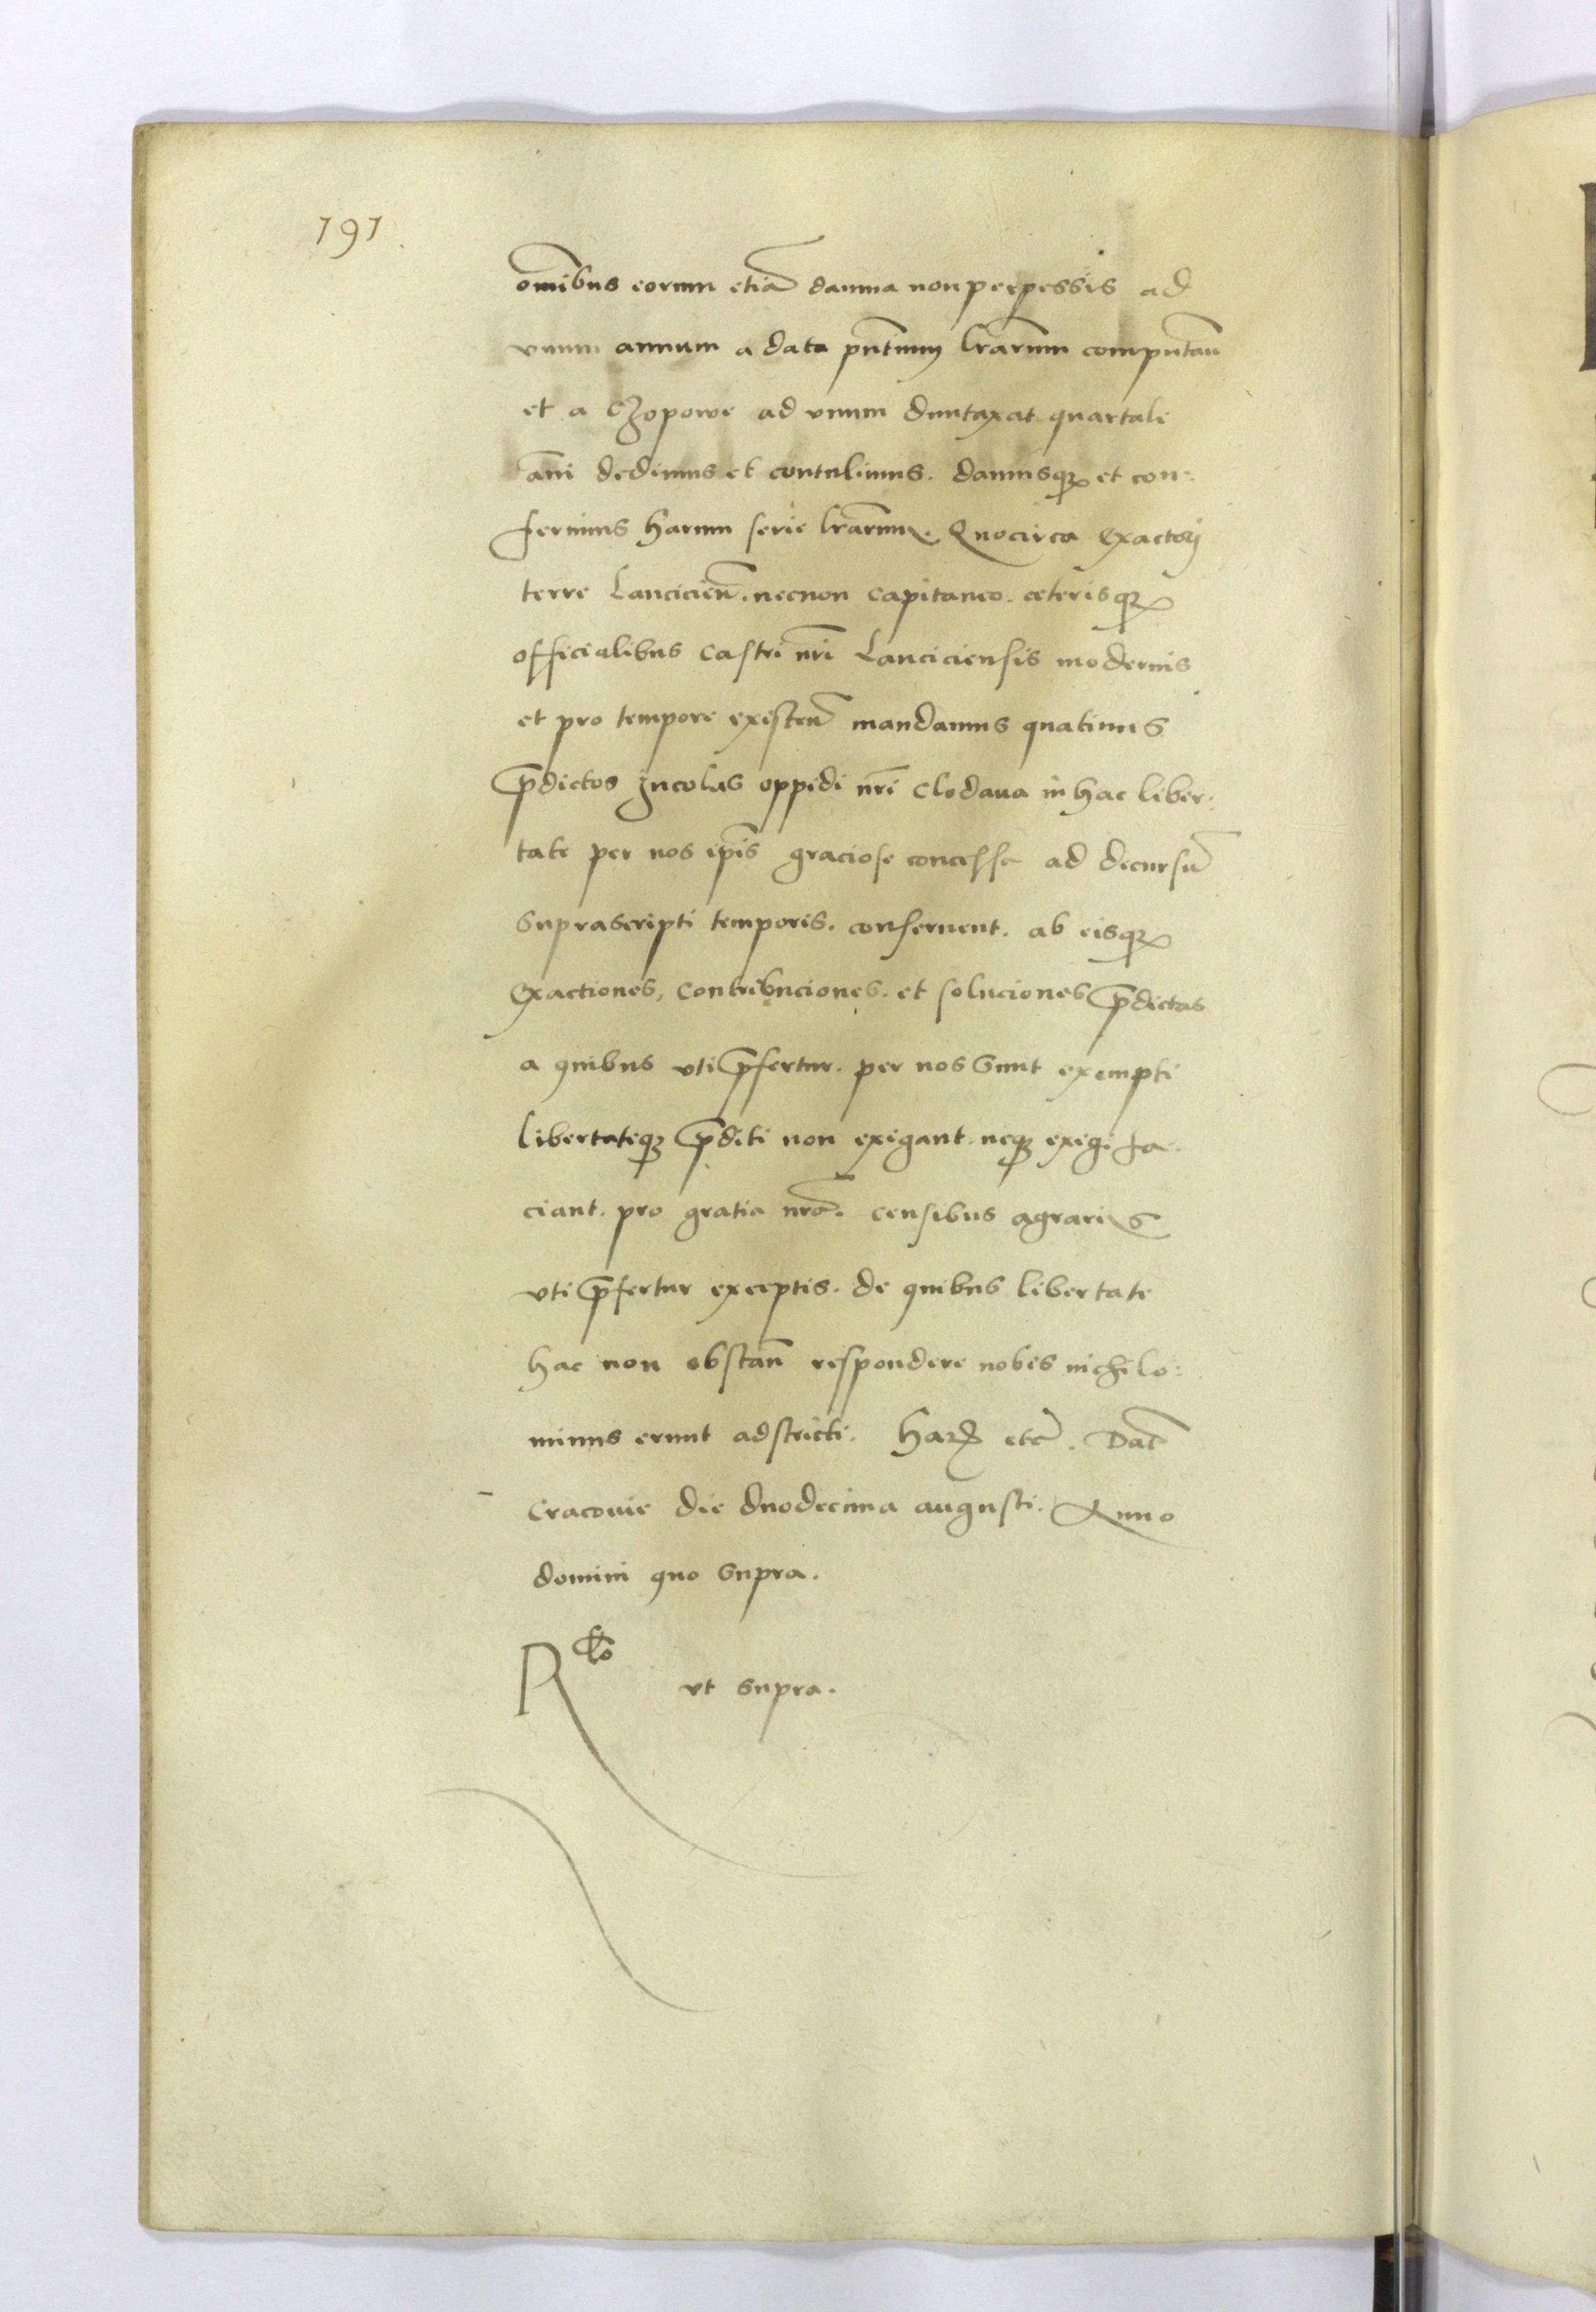 191.
om̅ibus eorum etiā damna non perpessis ad
vnum annum a data pn̅tium lr̅arum computan̅
et a Czopowe ad vnum duntaxat quartale
an̅i dedimus et contulimus. damusqꝫ et con:
ferimus harum serie lr̅arum. Quocirca Exactorj
terre Lancicien̅. necnon Capitaneo. ceterisqꝫ
officialibus Castri nr̅i Lanciciensis modernis
et pro tempore existen̅ mandamus quatimus
p̅dictos Incolas oppidi nr̅i Clodaua in hac liber:
tate per nos ip̅is graciose concessa ad decursū
suprascripti temporis. conseruent. ab eisqꝫ
Exactiones, Contribuciones. et soluciones p̅dictas
a quibus vti p̅fertur. per nos sunt exempti
libertateqꝫ p̅diti non exigant. neqꝫ exigi fa:
ciant. pro gratia nr̅a. censibus agrariis
vti p̅fertur exceptis. de quibus libertate
hac non obstan̅ respondere nobis nichilo:
minus erunt adstricti. Harꝝ etc̅. Dat̅
Cracouie die duodecima augusti. Anno
domini quo supra.
R<sup>lo</sup> vt supra.